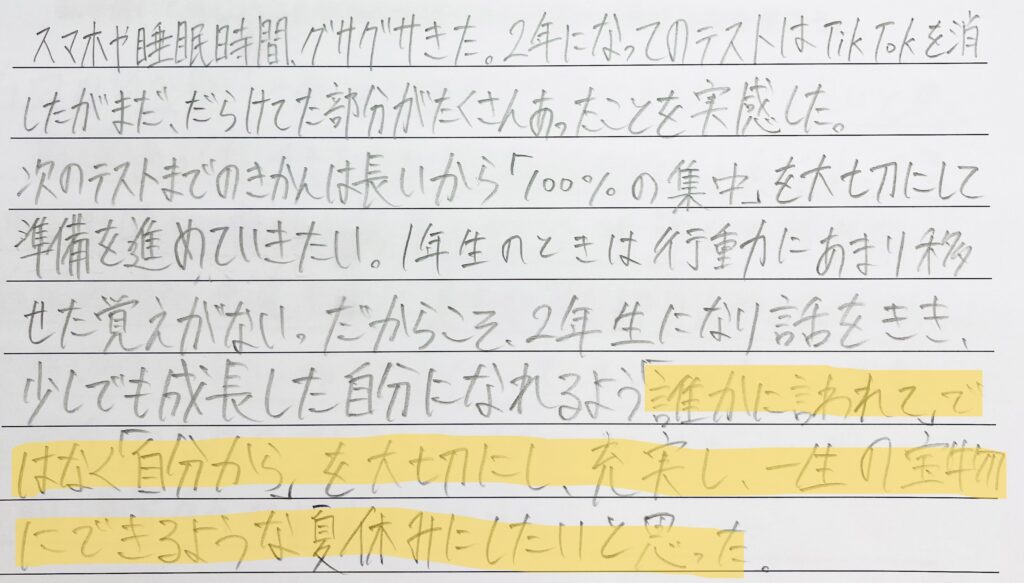 スマホや睡眠時間、グサグサきた。2年になってのテストはTikTokを消
したがまだ、だらけてた部分がたくさんあったことを実感した。
次のテストまでのきかんは長いから「100%の集中」を大切にして
準備を進めていきたい。1年生のときは行動力にあまり移
せた覚えがない。だからこそ、2年生になり話をきき、
少しでも成長した自分になれるよう「誰かに言われて」で
はなく「自分から」を大切にし、充実し、一生の宝物
にできるような夏休みにしたいと思った。